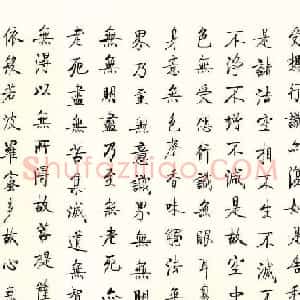 受想行識亦復如是
是諸法空相不生不滅不
不淨不增不減是故空中
色無受想行識無眼耳鼻
身意無色聲香味觸法無
界乃至無意識界無無明
無無明盡乃至無老死
老死盡無苦集滅道無智
無得以無所得故菩提薩
依般若波羅蜜多故心
Shufaziliao.com